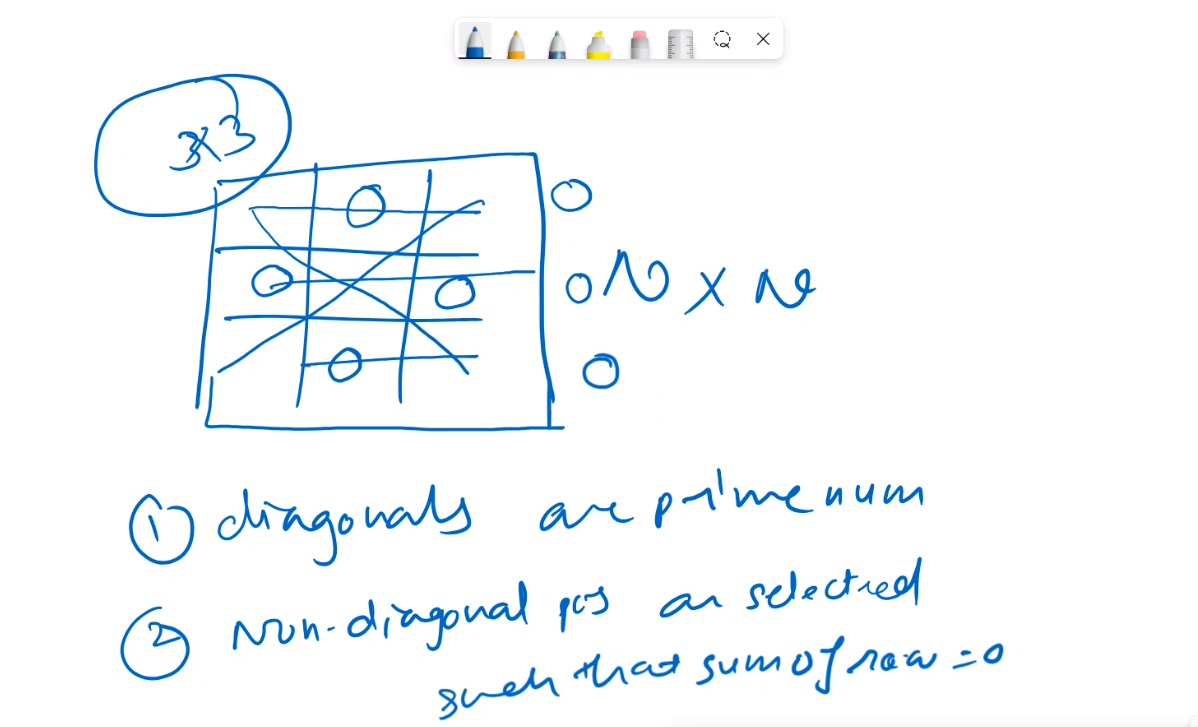 3x3
0
0 N x N
0
① diagonals are prime num
② Non-diagonal pos an selectred
such that sum of row = 0